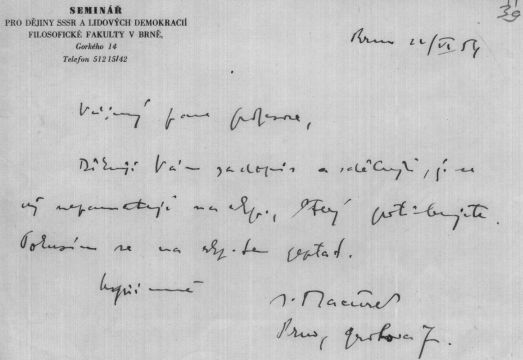 31
39
SEMINÁŘ
PRO DĚJINY SSSR A LIDOVÝCH DEMOKRACIÍ
FILOSOFICKÉ FAKULTY V BRNĚ,
Gorkého 14
Telefon 51215/42
Brno 22/VI 54
Vážený pane profesore,
Děkuji Vám za dopis a sděluji, že se
nepamatuji na, který potřebujete.
Pokusím se na zeptat.
Macůrek
Brno, Grohova 7.